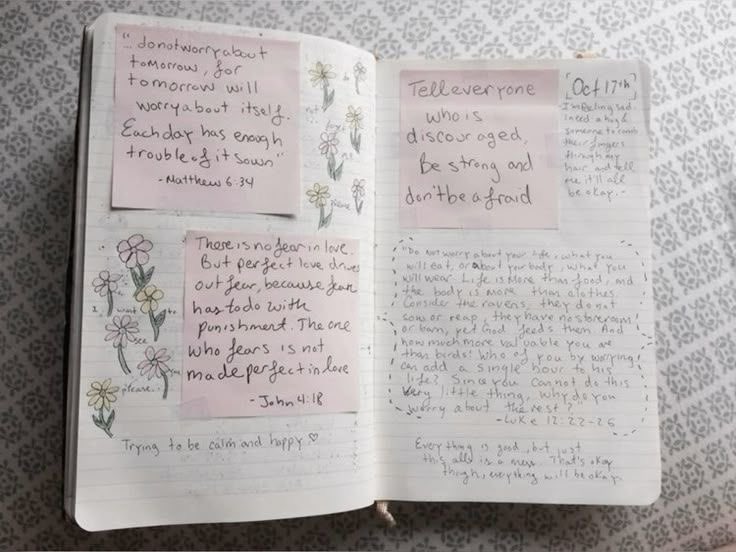 "...do not worry about
tomorrow, for
tomorrow will
worry about itself.
Each day has enough
trouble of its own"
-Matthew 6:34
not
please
There is no fear in love.
But perfect love drives
out fear, because fear
has to do with
punishment. The one
who fears is not
made perfect in love
-John 4:18
I want to
see you
please..
Trying to be calm and happy ♡
Tell everyone
who is
discouraged,
Be strong and
don't be afraid
[Oct 17th]
-I'm feeling sad.
I need a hug &
someone to comb
their fingers
through my
hair and tell
me it'll all
be okay.-
"Do not worry about your life, what you
will eat, or about your body, what you
will wear. Life is more than food, and
the body is more than clothes.
Consider the ravens, they do not
sow or reap, they have no storeroom
or barn, yet God feeds them. And
how much more valuable you are
than birds! Who of you by worrying
can add a single hour to his
life? Since you cannot do this
very little thing, why do you
worry about the rest?
-Luke 12:22-26
Everything is good, but just
this all is a mess. That's okay
though, everything will be okay.